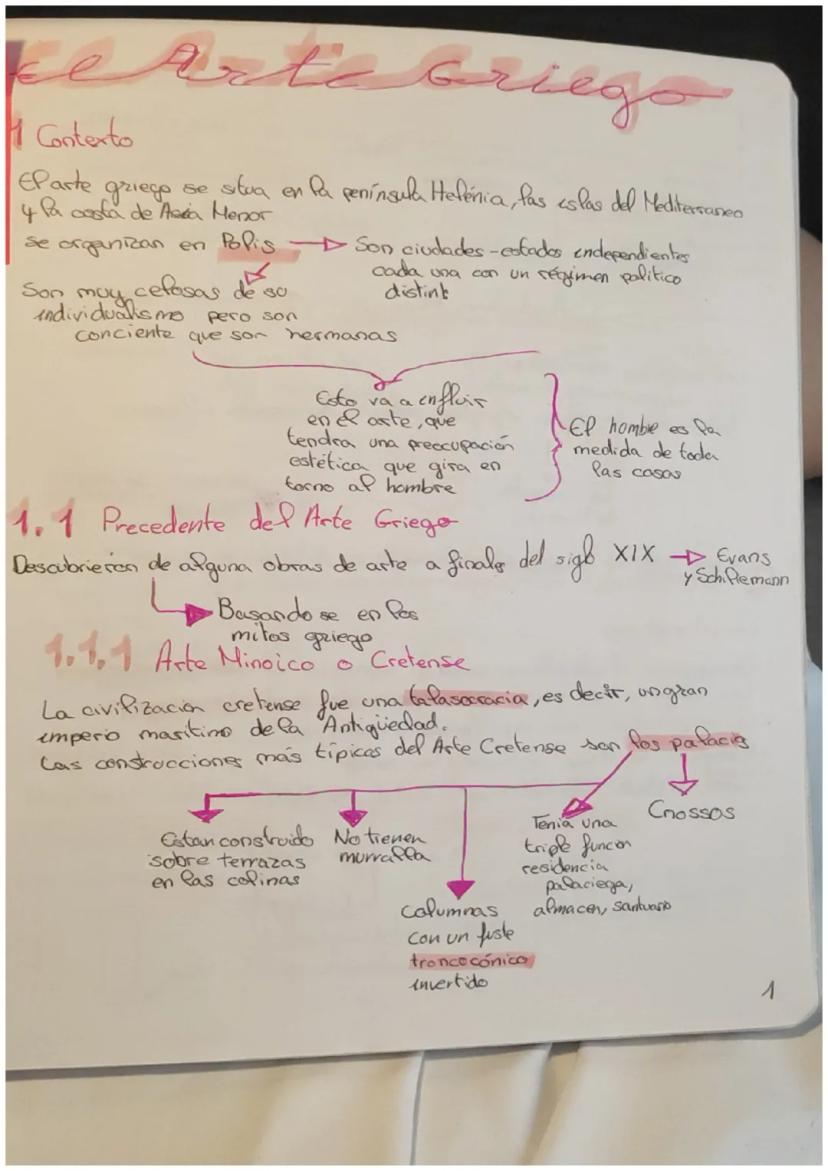 El Arte Griego
1 Contexto
El arte griego se situa en la península Helénia, las islas del Mediterraneo
y la costa de Asia Menor
se organizan en Polis → Son ciudades-estados independientes
cada una con un régimen politico
distint
Son muy celosas de su
individualismo pero son
conciente que son hermanas
Esto va a influir
en el arte, que
tendra una preocupación
estética que gira en
torno al hombre
El hombre es la
medida de toda
las cosas
1.1 Precedente del Arte Griego
Descubrieron de alguna obras de arte a finales del siglo XIX → Evans
y Schiflemann
Basandose en los
mitos griego
1.1.1 Arte Minoico o Cretense
La civilización cretense fue una talasocracia, es decir, un gran
imperio maritimo de la Antigüedad.
Las construcciones más típicas del Arte Cretense son los palacios
Estan construido
sobre terrazas
en las colinas
No tienen
murralla
Columnas
con un fuste
troncocónico
invertido
Tenia una
triple funcion
residencia
palaciega,
almacen, santuario
Cnossos
1